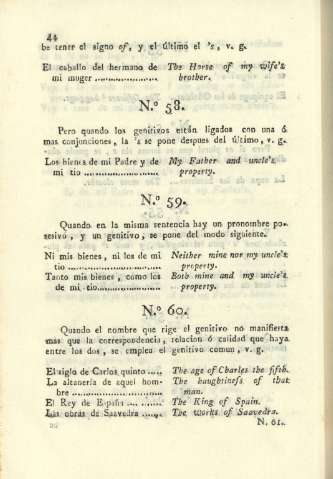 44
be tener el signo of, y el último el 's, v. g.
El caballo del hermano de The Horse of my wife's
mi muger .................... brother.
N.º 58.
Pero quando los genitivos están ligados con una ó
mas conjunciones, la 's se pone despues del último, v. g.
Los bienes de mi Padre y de My Father and uncle's
mi tio ........................ property.
N.º 59.
Quando en la misma sentencia hay un pronombre po-
sesivo, y un genitivo, se pone del modo siguiente.
Ni mis bienes, ni los de mi Neither mine nor my uncle's
tio ........................... property.
Tanto mis bienes, como los Both mine and my uncle's
de mi tio..................... property.
N.º 60.
Quando el nombre que rige el genitivo no manifiesta
mas que la correspondencia, relacion ó calidad que haya
entre los dos, se emplea el genitivo comun, v. g.
El siglo de Carlos quinto ..... The age of Charles the fifth.
La altanería de aquel hom- The haughtiness of that
bre ........................... man.
El Rey de España .............. The King of Spain.
Las obras de Saavedra ...... The works of Saavedra.
N. 61.